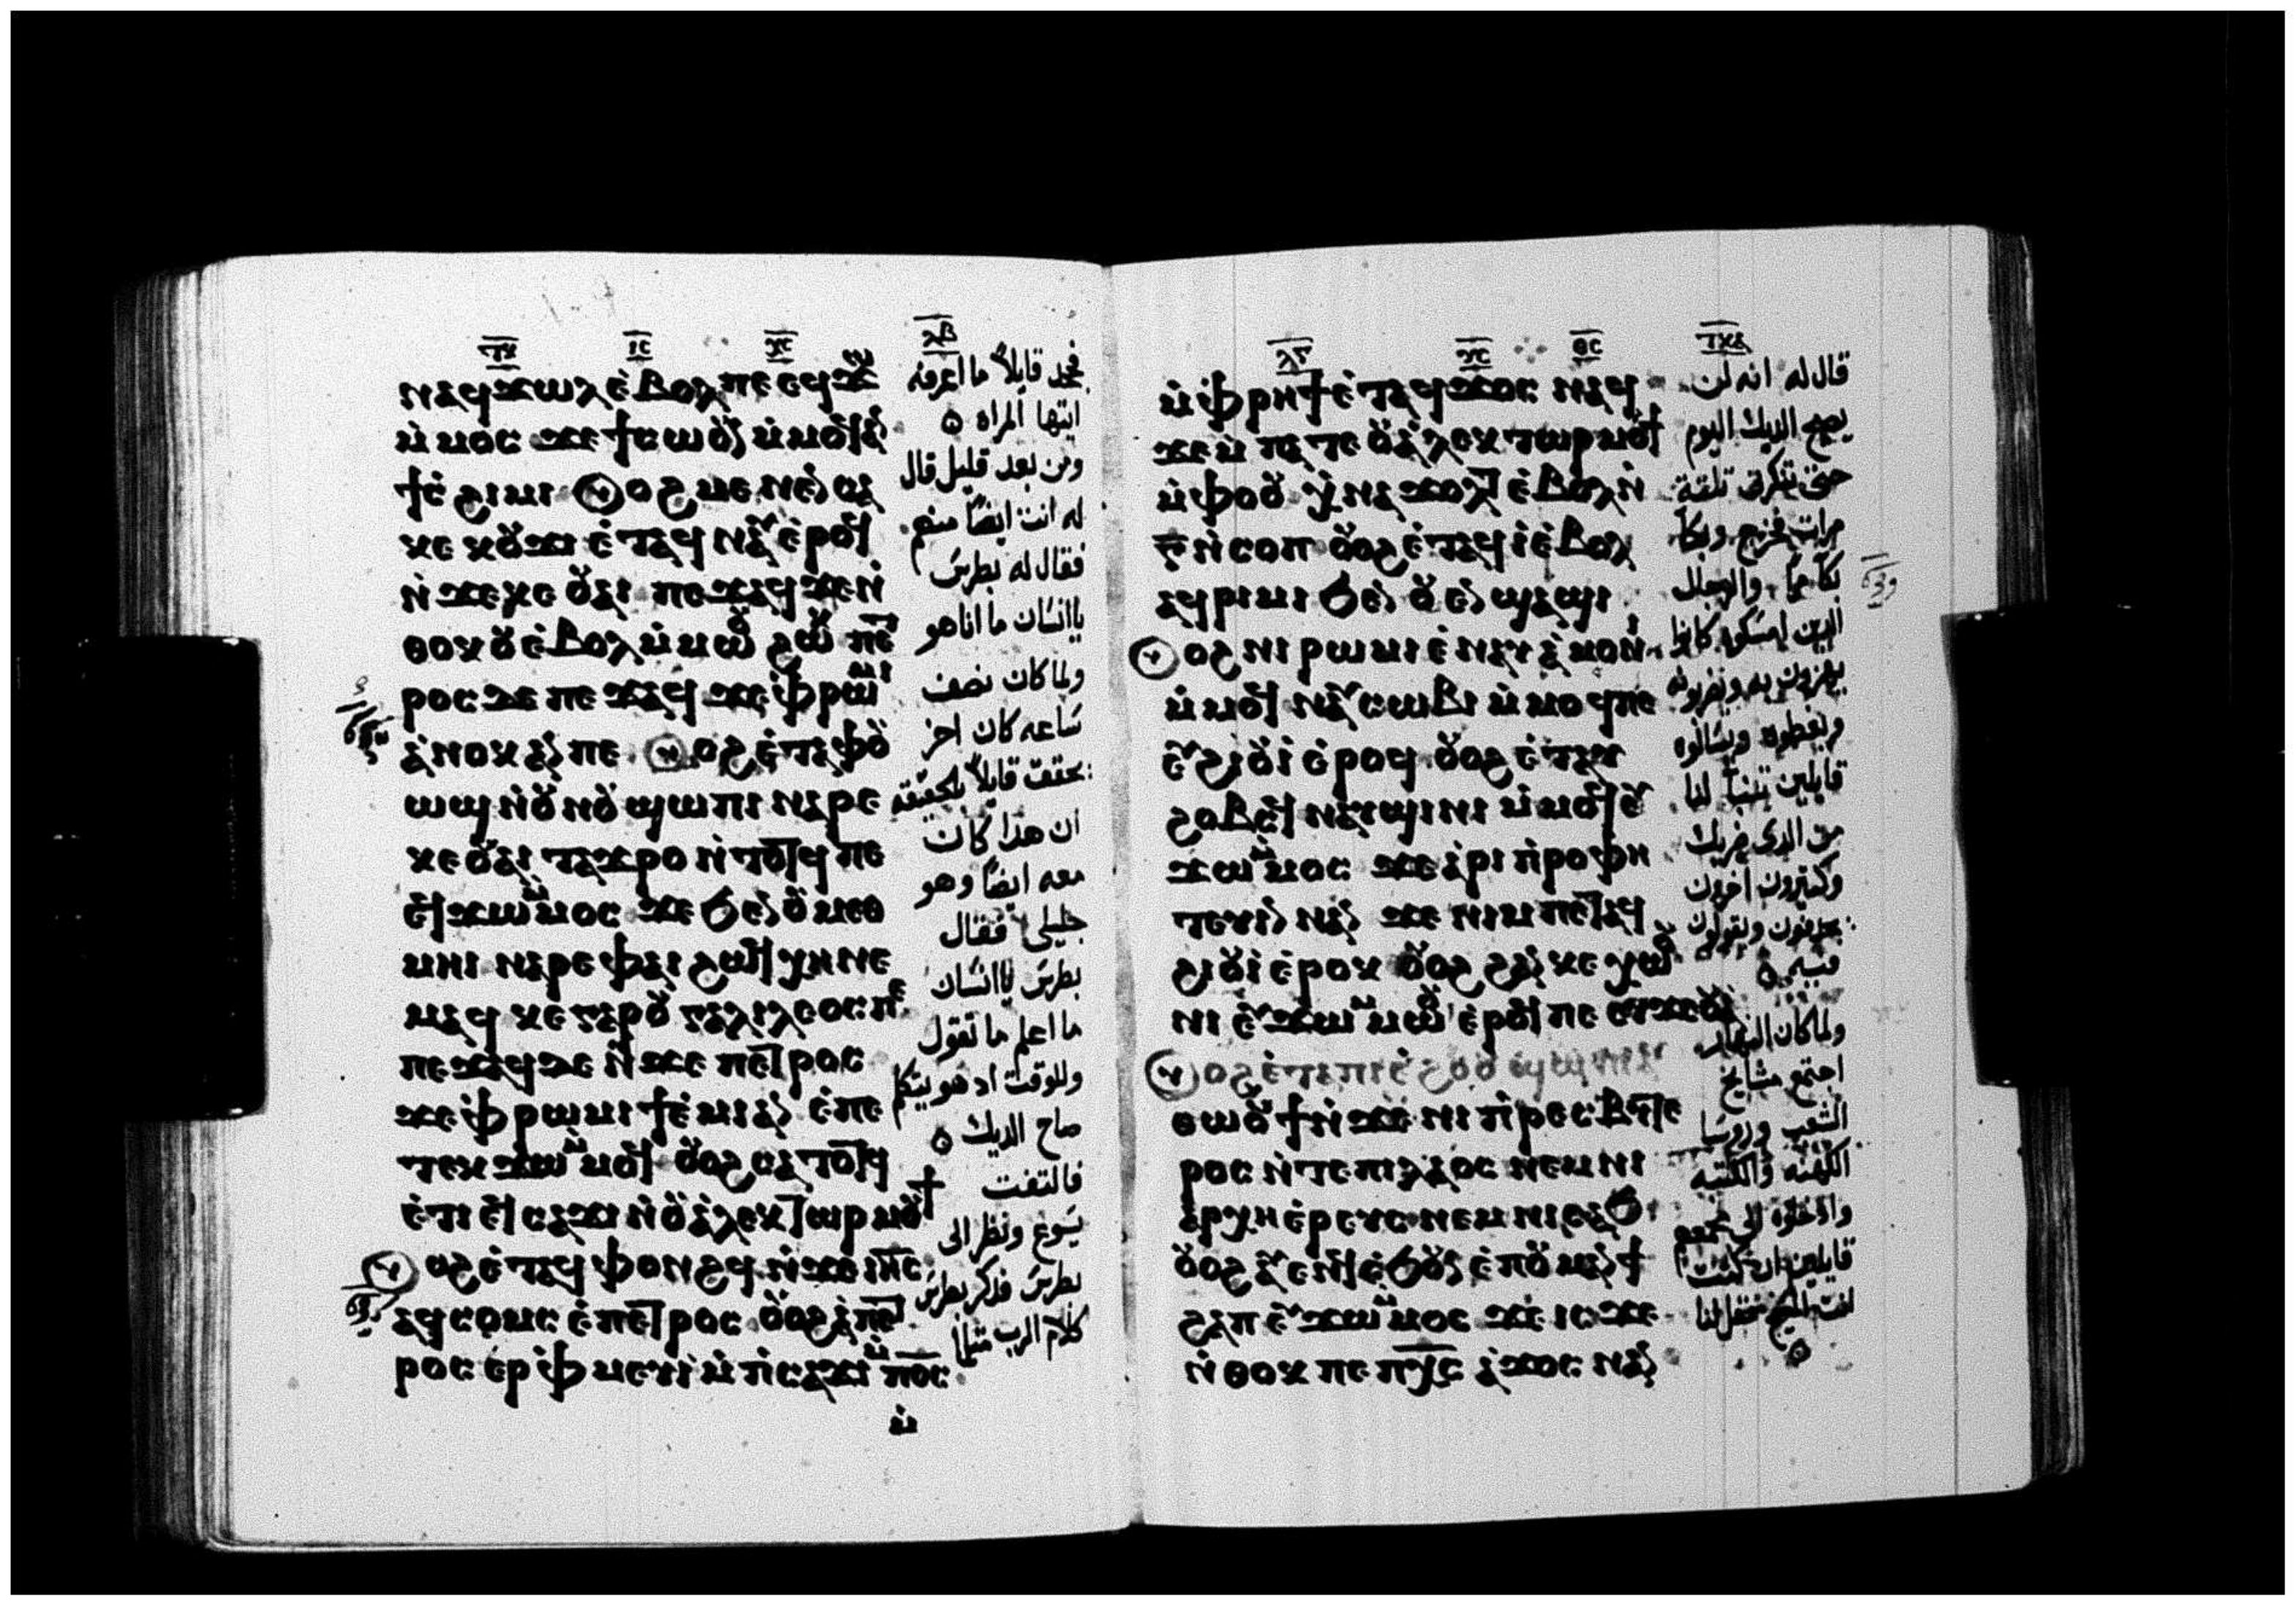 ⲓ̅ⲥ̅ ⲭ̅ⲥ̅ ⲗ̅ⲃ̅
ⲛⲁϥϫⲱⲗ ⲉ̀ⲃⲟⲗ ⲡⲉ ⲉϥϫⲱ
ⲙ̀ⲙⲟⲥ ϫⲉ ϯⲥⲱⲟⲩⲛ ⲙ̀ⲙⲟϥ ⲁⲛ
ϯⲥϩⲓⲙⲓ ⲟⲩⲟϩ ⲙⲉⲛⲉⲛⲥⲁ
ⲕⲉ ⲕⲟⲩϫⲓ ⲉ̀ⲧⲁϥⲛⲁⲩ ⲉ̀ⲣⲟϥ
ⲛ̀ϫⲉ ⲕⲉ ⲟⲩⲁⲓ ⲡⲉϫⲁϥ ϫⲉ ⲛ̀
ⲑⲟⲕ ⲟⲩ ⲉ̀ⲃⲟⲗ ⲙ̀ⲙⲱⲟⲩ ϩⲱⲕ ⲡⲉⲧ
ⲣⲟⲥ ⲇⲉ ⲡⲉϫⲁϥ ϫⲉ ⲫ̀ⲣⲱⲙⲓ
ⲁ̀ⲛⲟⲕ ⲁⲛ ⲡⲉ ⲟⲩⲟϩ ⲉ̀ⲧⲁ ⲫⲟⲩ
ⲱϣ ⲛ̀ⲟⲩⲛⲟⲩ ϣⲱⲡⲓ ⲛⲁⲣⲉ
ⲕⲉ ⲟⲩⲁⲓ ⲧⲁϫⲣⲟ ⲛ̀ⲧⲟⲧϥ ⲡⲉ
ⲉϥϫⲱ ⲙ̀ⲙⲟⲥ ϫⲉ ϧⲉⲛ ⲟⲩⲙⲉⲑ
ⲙⲏⲓ ⲛⲁⲣⲉ ⲫⲁⲓ ϩⲱϥ ⲭⲏ ⲛⲉ
ⲙⲁϥ ⲕⲉ ⲅⲁⲣ ⲟⲩⲅⲁⲗⲓⲗⲉⲟⲥ ⲡⲉ
ⲡⲉϫⲁϥ ⲇⲉ ⲛ̀ϫⲉ ⲡⲉⲧⲣⲟⲥ
ϫⲉ ⲫ̀ⲣⲱⲙⲓ ϯⲉ̀ⲙⲓ ⲁⲛ ⲉ̀ⲡⲉ
ⲧⲉⲕϫⲱ ⲙ̀ⲙⲟϥ ⲟⲩⲟϩ ⲥⲁⲧⲟⲧϥ
ⲉ̀ⲧⲓ ⲉϥⲥⲁϫⲓ ⲛ̀ⲟⲩⲁ̀ⲗⲉⲕⲧⲱⲣ ⲙⲟⲩϯ
ⲟⲩⲟϩ ⲉ̀ⲧⲁϥⲫⲟⲛϩϥ ⲛ̀ϫⲉ ⲓⲏⲥ
ⲁϥⲥⲟⲙⲥ ⲉ̀ⲡⲉⲧⲣⲟⲥ ⲟⲩⲟϩ ⲁ̀ⲡⲉⲧ
ⲣⲟⲥ ⲉⲣ ⲫ̀ⲙⲉⲩⲓ̀ ⲙ̀ⲡ̀ⲥⲁϫⲓ ⲙ̀ⲡ̅ⲟ̅ⲥ̅
ⲙ̀
فجحد قايلاً ما اعرفه
ايتها المراه
ومن بعد قليل قال
له انت ايضاً منهم
فقال له بطرس
ياانسان ما اناهو
ولما كان نصف
ساعه كان اخر
يحقق قايلاً بالحقيقه
ان هدا كان
معه ايضاً وهو
جليلي فقال
بطرس ياانسان
ما اعلم ما تقول
وللوقت اد هو يتكلم
صاح الديك
فالتفت
يسوع ونظر الى
بطرس فدكر بطرس
كلام الرب مثلما
ⲗ̅ⲅ̅ ⲩ̅ⲥ̅ ⲑ̅ⲥ̅
ⲙ̀ⲫ̀ⲣⲏϯ ⲉ̀ⲧⲁϥϫⲟⲥ ⲛⲁϥ
ϫⲉ ⲙ̀ⲡⲁⲧⲉ ⲟⲩⲁ̀ⲗⲉⲕⲧⲱⲣ ⲙⲟⲩϯ
ⲙ̀ⲫⲟⲟⲩ ⲭ̀ⲛⲁϫⲟⲗⲧ ⲉ̀ⲃⲟⲗ ⲛ̀
ⲅ̅ ⲛ̀ⲥⲟⲡ ⲟⲩⲟϩ ⲉ̀ⲧⲁϥⲓ̀ ⲉ̀ⲃⲟⲗ
ⲁϥⲣⲓⲙⲓ ϧⲉⲛ ⲟⲩⲉⲛϣⲁϣⲓ
ⲟⲩⲟϩ ⲛⲓⲣⲱⲙⲓ ⲉ̀ⲛⲁⲩⲁ̀ⲙⲟⲛⲓ
ⲙ̀ⲙⲟϥ ⲛⲁⲩⲥⲱⲃⲓ ⲙ̀ⲙⲟϥ ⲡⲉ
ⲉⲩϩⲓⲟⲩⲓ̀ ⲉ̀ⲣⲟϥ ⲟⲩⲟϩ ⲉ̀ⲧⲁⲩ
ϩⲟⲃⲥϥ ⲛⲁⲩϣⲓⲛⲓ ⲙ̀ⲙⲟϥ ⲉⲩ
ϫⲱ ⲙ̀ⲙⲟⲥ ϫⲉ ⲁ̀ⲣⲓ ⲡ̀ⲣⲟⲫⲏ
ⲧⲉⲩⲓⲛ ⲛⲁⲛ ϫⲉ ⲛⲓⲙ ⲡⲉⲧⲁϥ
ϩⲓⲟⲩⲓ̀ ⲉ̀ⲣⲟⲕ ⲟⲩⲟϩ ϩⲁⲛⲕⲉⲭⲱⲟⲩ
ⲛⲓ ⲉⲩϫⲱ ⲙ̀ⲙⲱⲟⲩ ⲉ̀ⲣⲟϥ ⲡⲉ ⲉⲩϫⲉⲟⲩⲁ̀
ⲟⲩⲟϩ ⲉ̀ⲧⲁ ⲡⲓⲉ̀ϩⲟⲟⲩ ϣⲱⲡⲓ ⲁⲩ
ⲑⲱⲟⲩϯ ⲛ̀ϫⲉ ⲛⲓⲡ̀ⲣⲉⲥⲃⲩⲧⲉ
ⲣⲟⲥ ⲛ̀ⲧⲉ ⲡⲓⲗⲁⲟⲥ ⲛⲉⲙ ⲛⲓ
ⲁⲣⲭⲏⲉ̀ⲣⲉⲩⲥ ⲛⲉⲙ ⲛⲓⲥⲁϧ
ⲟⲩⲟϩ ⲁⲩⲉⲛϥ ⲉ̀ϧⲟⲩⲛ ⲉ̀ⲡⲟⲩⲙⲁⲛϯ
ϩⲁⲡ ⲉⲩϫⲱ ⲙ̀ⲙⲟⲥ ϫⲉ ⲓⲥϫⲉ
ⲛ̀ⲑⲟⲕ ⲡⲉ ⲡ̅ⲭ̅ⲥ̅ ⲁ̀ϫⲟⲥ ⲛⲁⲛ
قال له انه لن
يصيح الديك اليوم
حتى تنكرنى تلتة
مرات فخرج وبكا
بكآ مراً والرجال
الدين امسكوه كانوا
يهزون به ويضربونه
وغطوه ويسالوه
قايلين تنبأ لنا
من الدى ضربك
وكتيرون اخرون
يجدفون ويقولون
فيه
ولما كان النهار
اجتمع مشايخ
الشعب وروسا
الكهنه والكتبه
وادخلوه الى مجمعهم
قايلين ان كنت
انت المسيح فقل لنا